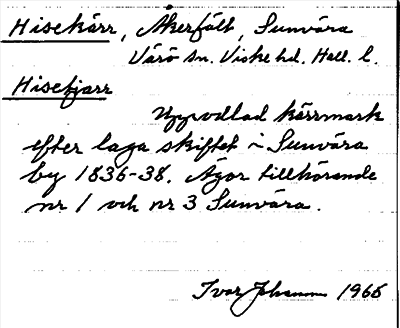 Hisekärr, Åkerfält, Sunvära
Värö sn. Viske hd. Hall. l.
Hisekjarr
Uppodlad kärrmark
efter laga skiftet i Sunvära
by 1836-38. Ägor tillhörande
nr 1 och nr 3 Sunvära.
Ivar Johansson 1966